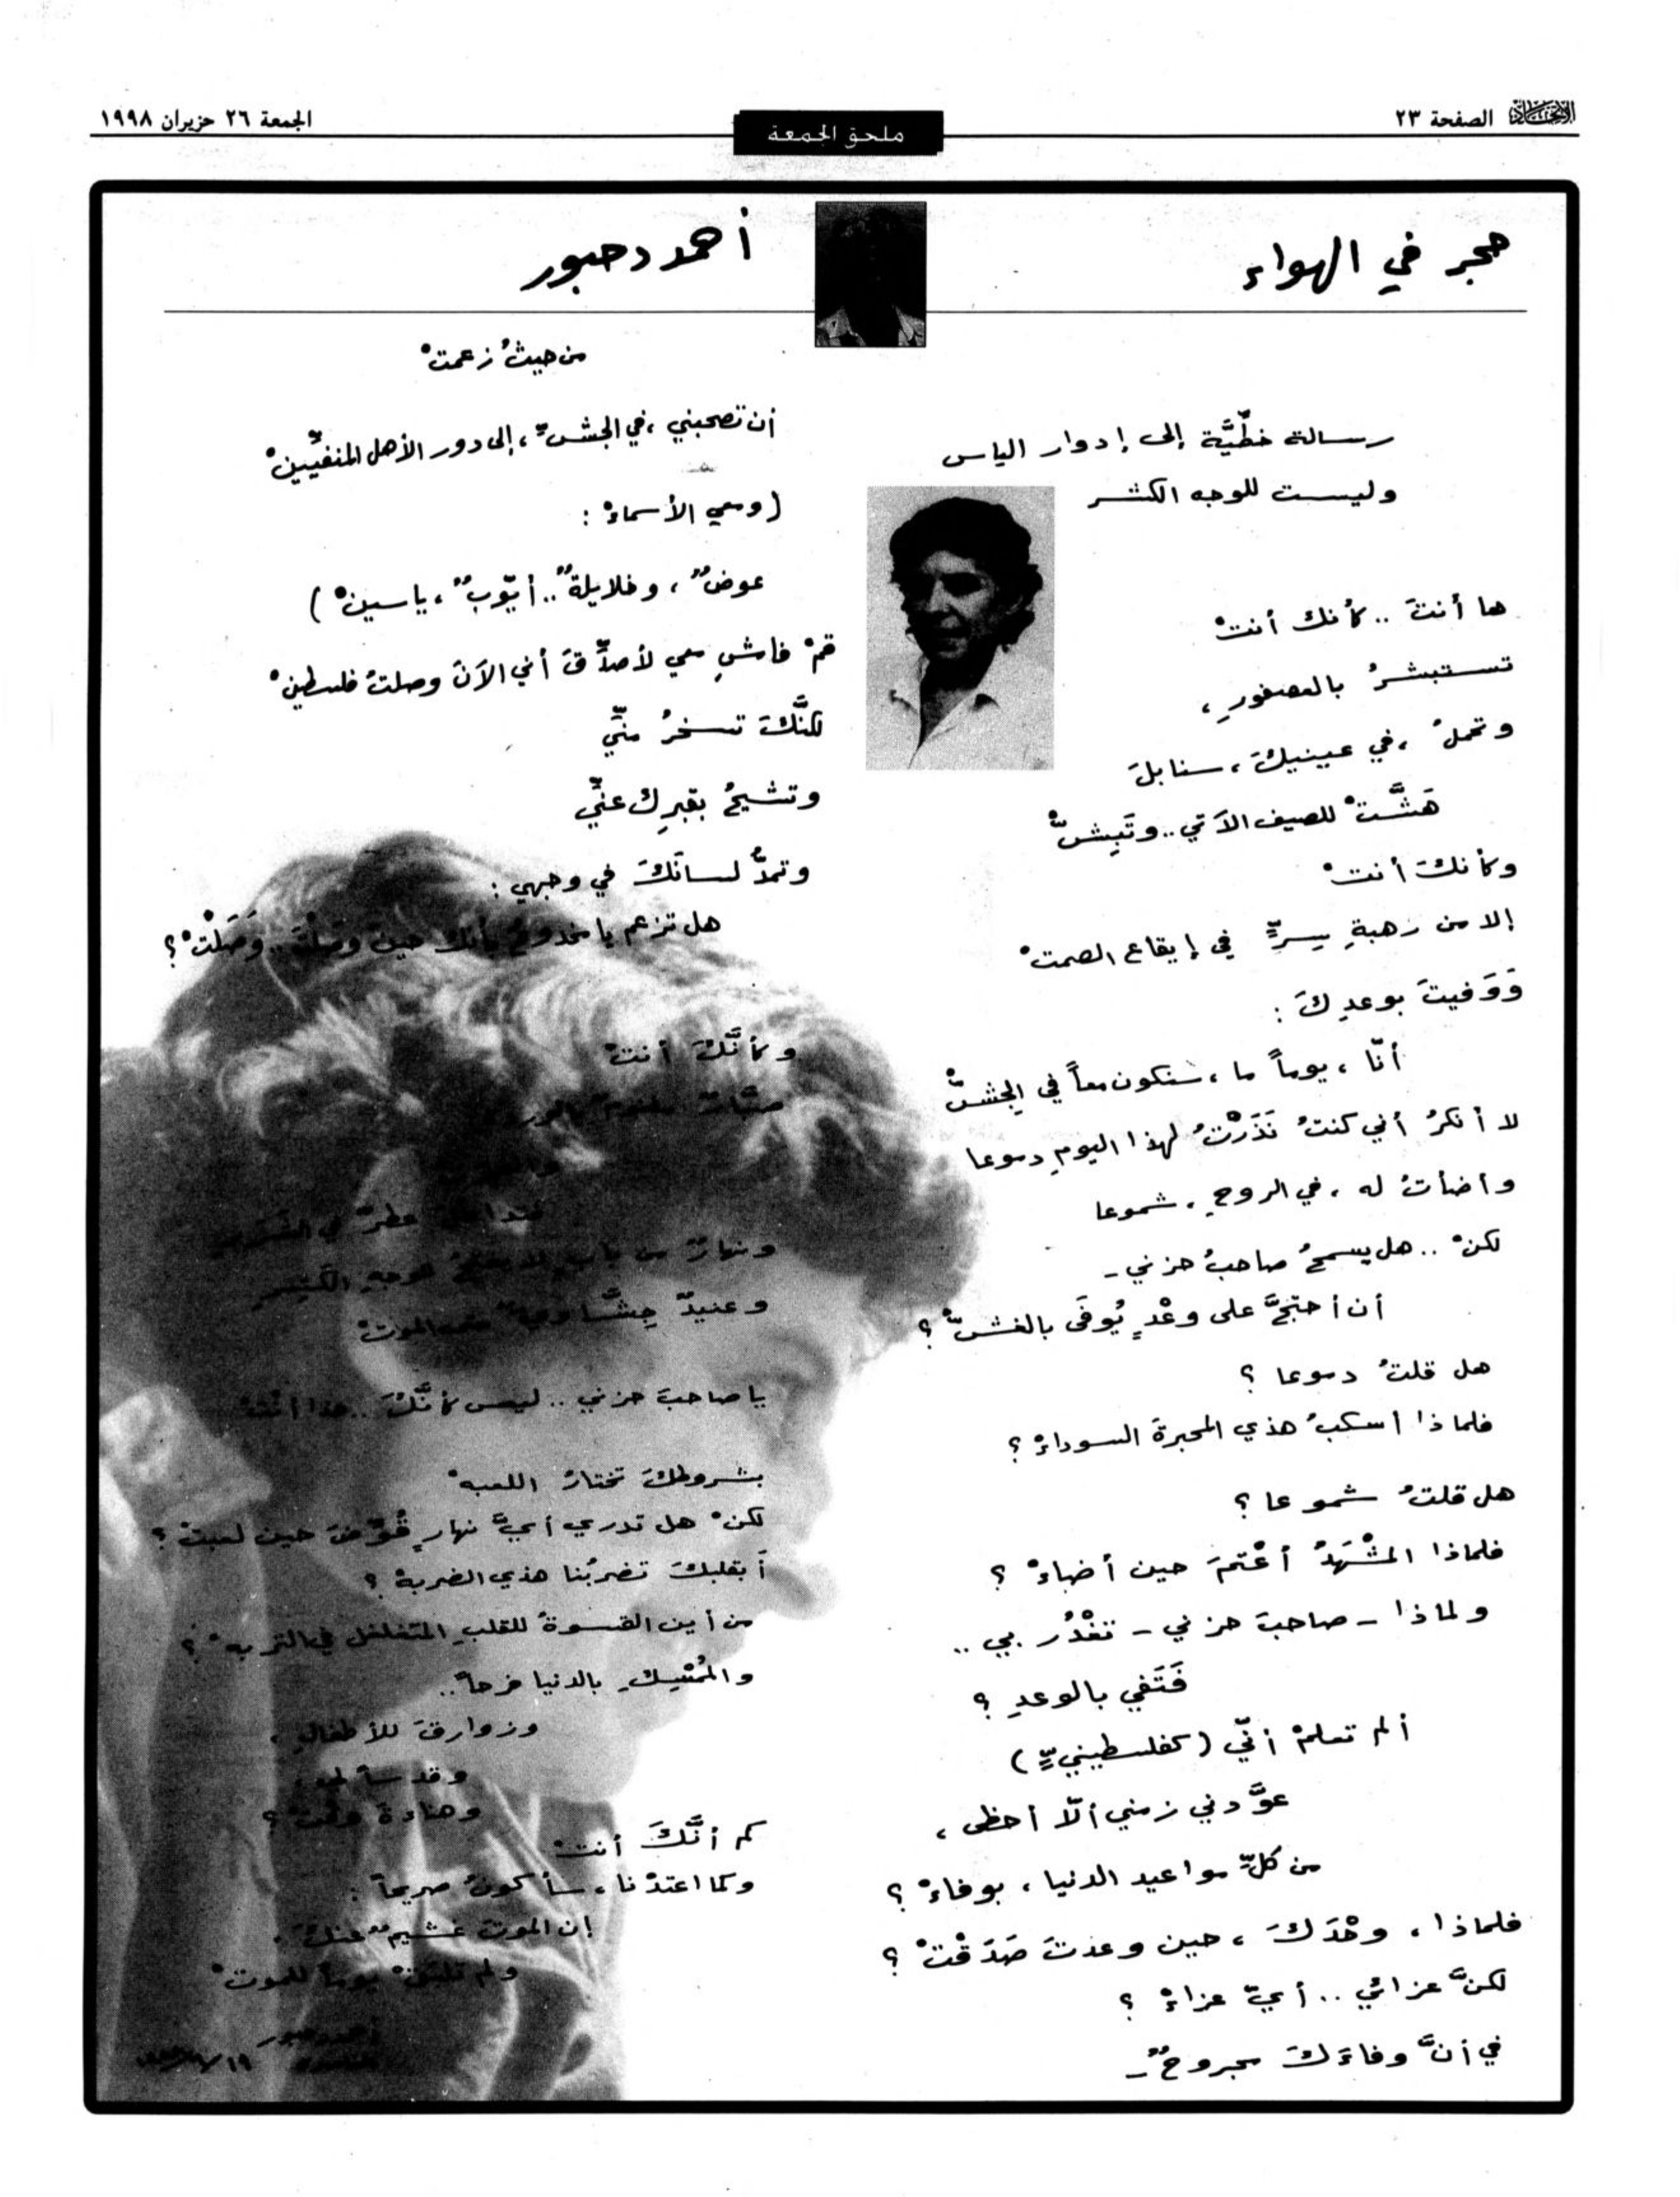 الاتحاد الصفحة ٢٣
ملحق الجمعة
الجمعة ٢٦ حزيران ١٩٩٨
حجر في الهواء
أحمد دحبور
رسالة خطّيَّة إلى إدوار الياس
وليست للوجه الكشر
ها أنتَ .. كأنك أنتْ
تستبشرُ بالعصفورِ،
وتحملُ، في عينيكَ، سنابلَ
هَشَّتْ للصيف الآتي .. وتَبِشّْ
وكأنك أنتْ
إلا من رهبةِ سِرٍّ في إيقاع الصمتْ
وَوَفيتَ بوعدِكَ :
أنّا، يوماً ما، سنكون معاً في الجِشّْ
لا أنكرُ أني كنتُ نَذَرْتُ لهذا اليومِ دموعا
وأضأتُ له، في الروحِ، شموعا
لكنْ .. هل يسمحُ صاحبُ حزني -
أن أحتجَّ على وعْدٍ يُوفَى بالغشّْ ؟
هل قلتُ دموعا ؟
فلماذا أسكبُ هذي المحبرةَ السوداءْ ؟
هل قلتُ شموعا ؟
فلماذا المشْهَدُ أعْتمَ حين أضاءْ ؟
ولماذا - صاحبَ حزني - تغْدُر بي ..
فَتَفي بالوعدِ ؟
ألم تعلمْ أنّي (كفلسطينيٍّ)
عوَّدني زمني ألّا أحظى،
من كلِّ مواعيد الدنيا، بوفاءْ ؟
فلماذا، وحْدَكَ، حين وعدتَ صَدَقْتْ ؟
لكنَّ عزائي .. أيّ عزاءْ ؟
في أنَّ وفاءَكَ مجروحٌ -
من حيثُ زعمتْ
أن تصحبني، في الجشّ، إلى دور الأهل المنفيِّينْ
(ومعي الأسماءْ :
عوضٌ، وخلايلةٌ .. أيّوبٌ، ياسينْ)
قمْ فامشِ معي لأصدِّقَ أني الآنَ وصلتُ فلسطينْ
لكنَّكَ تسخرُ منّي
وتشيحُ بقبرِك عنّي
وتمدُّ لسانَكَ في وجهي :
هل تزعم يا مخدوعُ بأنك حين وصلْتَ .. وَصَلْتْ ؟
وكأنَّكَ أنتْ
ونهارٌ من بابٍ لا يفتحُ للوجهِ الكَشِرِ
وعنيدٌ جِشَّاويٌّ الموتْ
يا صاحبَ حزني .. ليس كأنَّكَ .. هذا أنتْ
بشروطكَ تختارُ اللعبهْ
لكنْ هل تدري أيَّ نهارٍ قُوِّضَ حين لعبتْ ؟
أبقلبكَ تضربُنا هذي الضربهْ ؟
من أين القسوةُ للقلبِ المتغلغل في التربهْ ؟
والمُمْسِكِ بالدنيا فرحاً ..
وزوارقَ للأطفالِ،
وقدساً لي،
وهناءةَ وقتْ ؟
كم أنَّكَ أنتْ
وكما اعتدْنا، سأكونُ صريحاً :
إن الموتَ غشيمٌ عنكَ.
ولم تلبَقْ يوماً للموتْ
أحمد دحبور